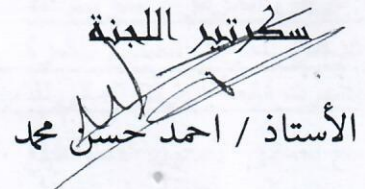 سكرتير اللجنة
الأستاذ / احمد حسن محمد